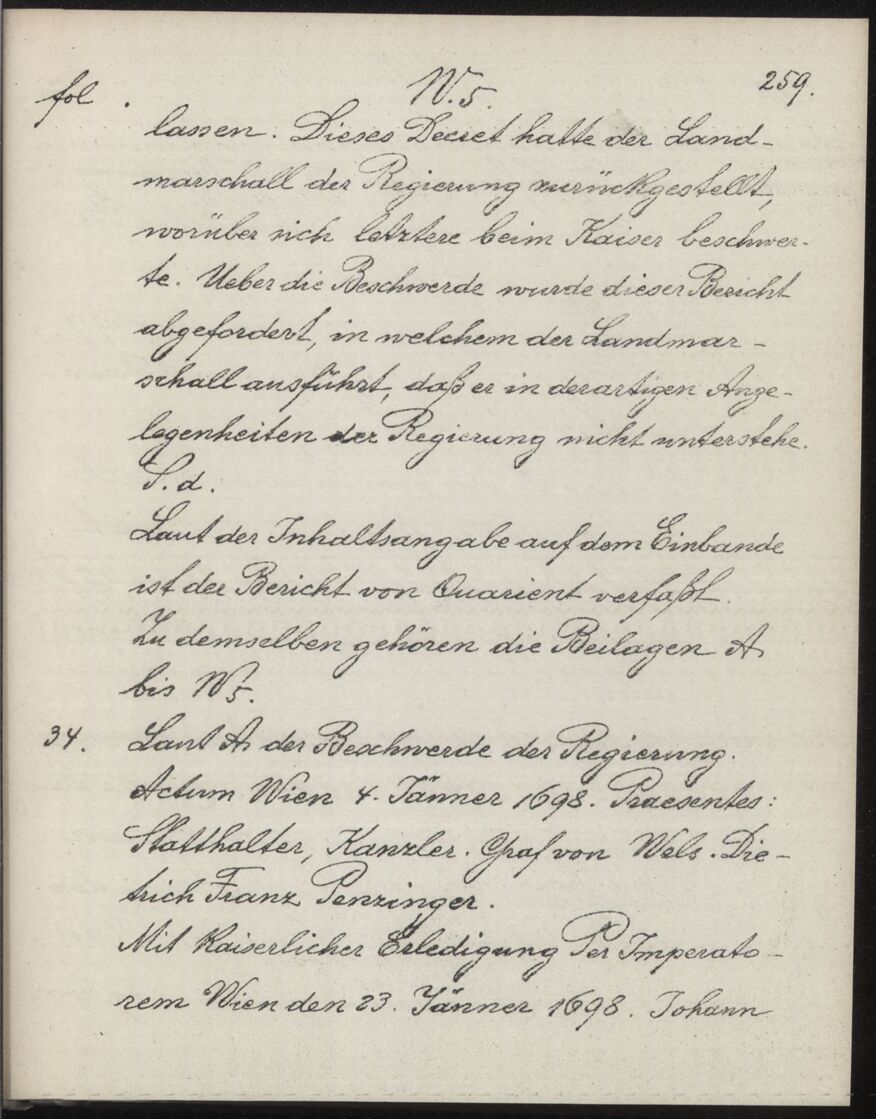 fol. N. 5. 259.
lassen. Dieses Decret hatte der Land-
marschall der Regierung zurückgestellt,
worüber sich letztere beim Kaiser beschwer-
te. Ueber die Beschwerde wurde dieser Bericht
abgefordert, in welchem der Landmar-
schall ausführt, daß er in derartigen Ange-
legenheiten der Regierung nicht unterstehe.
S. d.
Laut der Inhaltsangabe auf dem Einbande
ist der Bericht von Quarient verfaßt.
Zu demselben gehören die Beilagen A
bis N 5.
34. Laut A der Beschwerde der Regierung.
Actum Wien 4. Jänner 1698. Praesentes:
Statthalter, Kanzler. Graf von Wels. Die-
trich Franz Penzinger.
Mit Kaiserlicher Erledigung Per Imperato-
rem Wien den 23. Jänner 1698. Johann